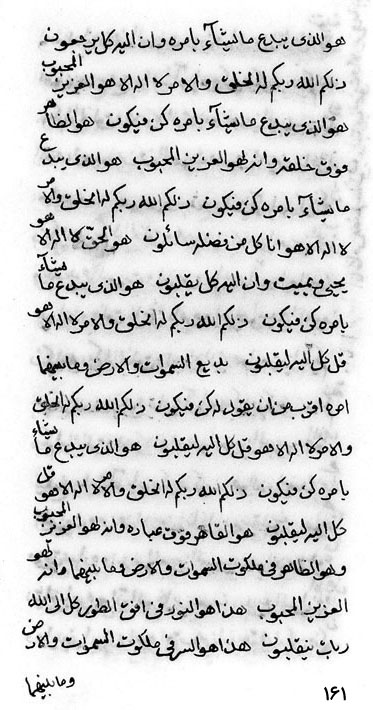 هو الذی یبدع ما یشآء بامره وان الیه کل یرجعون
ذلکم الله ربکم له الخلق والامر لا اله الا هو العزیز المحبوب
هو الذی یبدع ما یشآء بامره کن فیکون هو الظاهر
فوق خلقه وانه لهو العزیز المحبوب هو الذی یبدع
ما یشآء بامره کن فیکون ذلکم الله ربکم له الخلق والامر
لا اله الا هو انا کل من فضله سائلون هو الحق لا اله الا هو
یحیی ویمیت وان الیه کل یقلبون هو الذی یبدع ما یشآء
بامره کن فیکون ذلکم الله ربکم له الخلق والامر لا اله الا هو
قل کل الیه لیقلبون بدیع السموات والارض وما بینهما
امره اقرب من ان یقول له کن فیکون ذلکم الله ربکم له الخلق
والامر لا اله الا هو قل کل الیه لیقلبون هو الذی یبدع ما یشاء
بامره کن فیکون ذلکم الله ربکم له الخلق والامر لا اله الا هو قل
کل الیه لیقلبون هو القاهر فوق عباده وانه لهو العزیز المحبوب
وهو الظاهر فی ملکوت السموات والارض وما بینهما وانه لهو
العزیز المحبوب هذا هو النور فی افق الطور کل الی الله
ربک ینقلبون هذا هو السر فی ملکوت السموات والارض
وما بینهما
۱۶۱